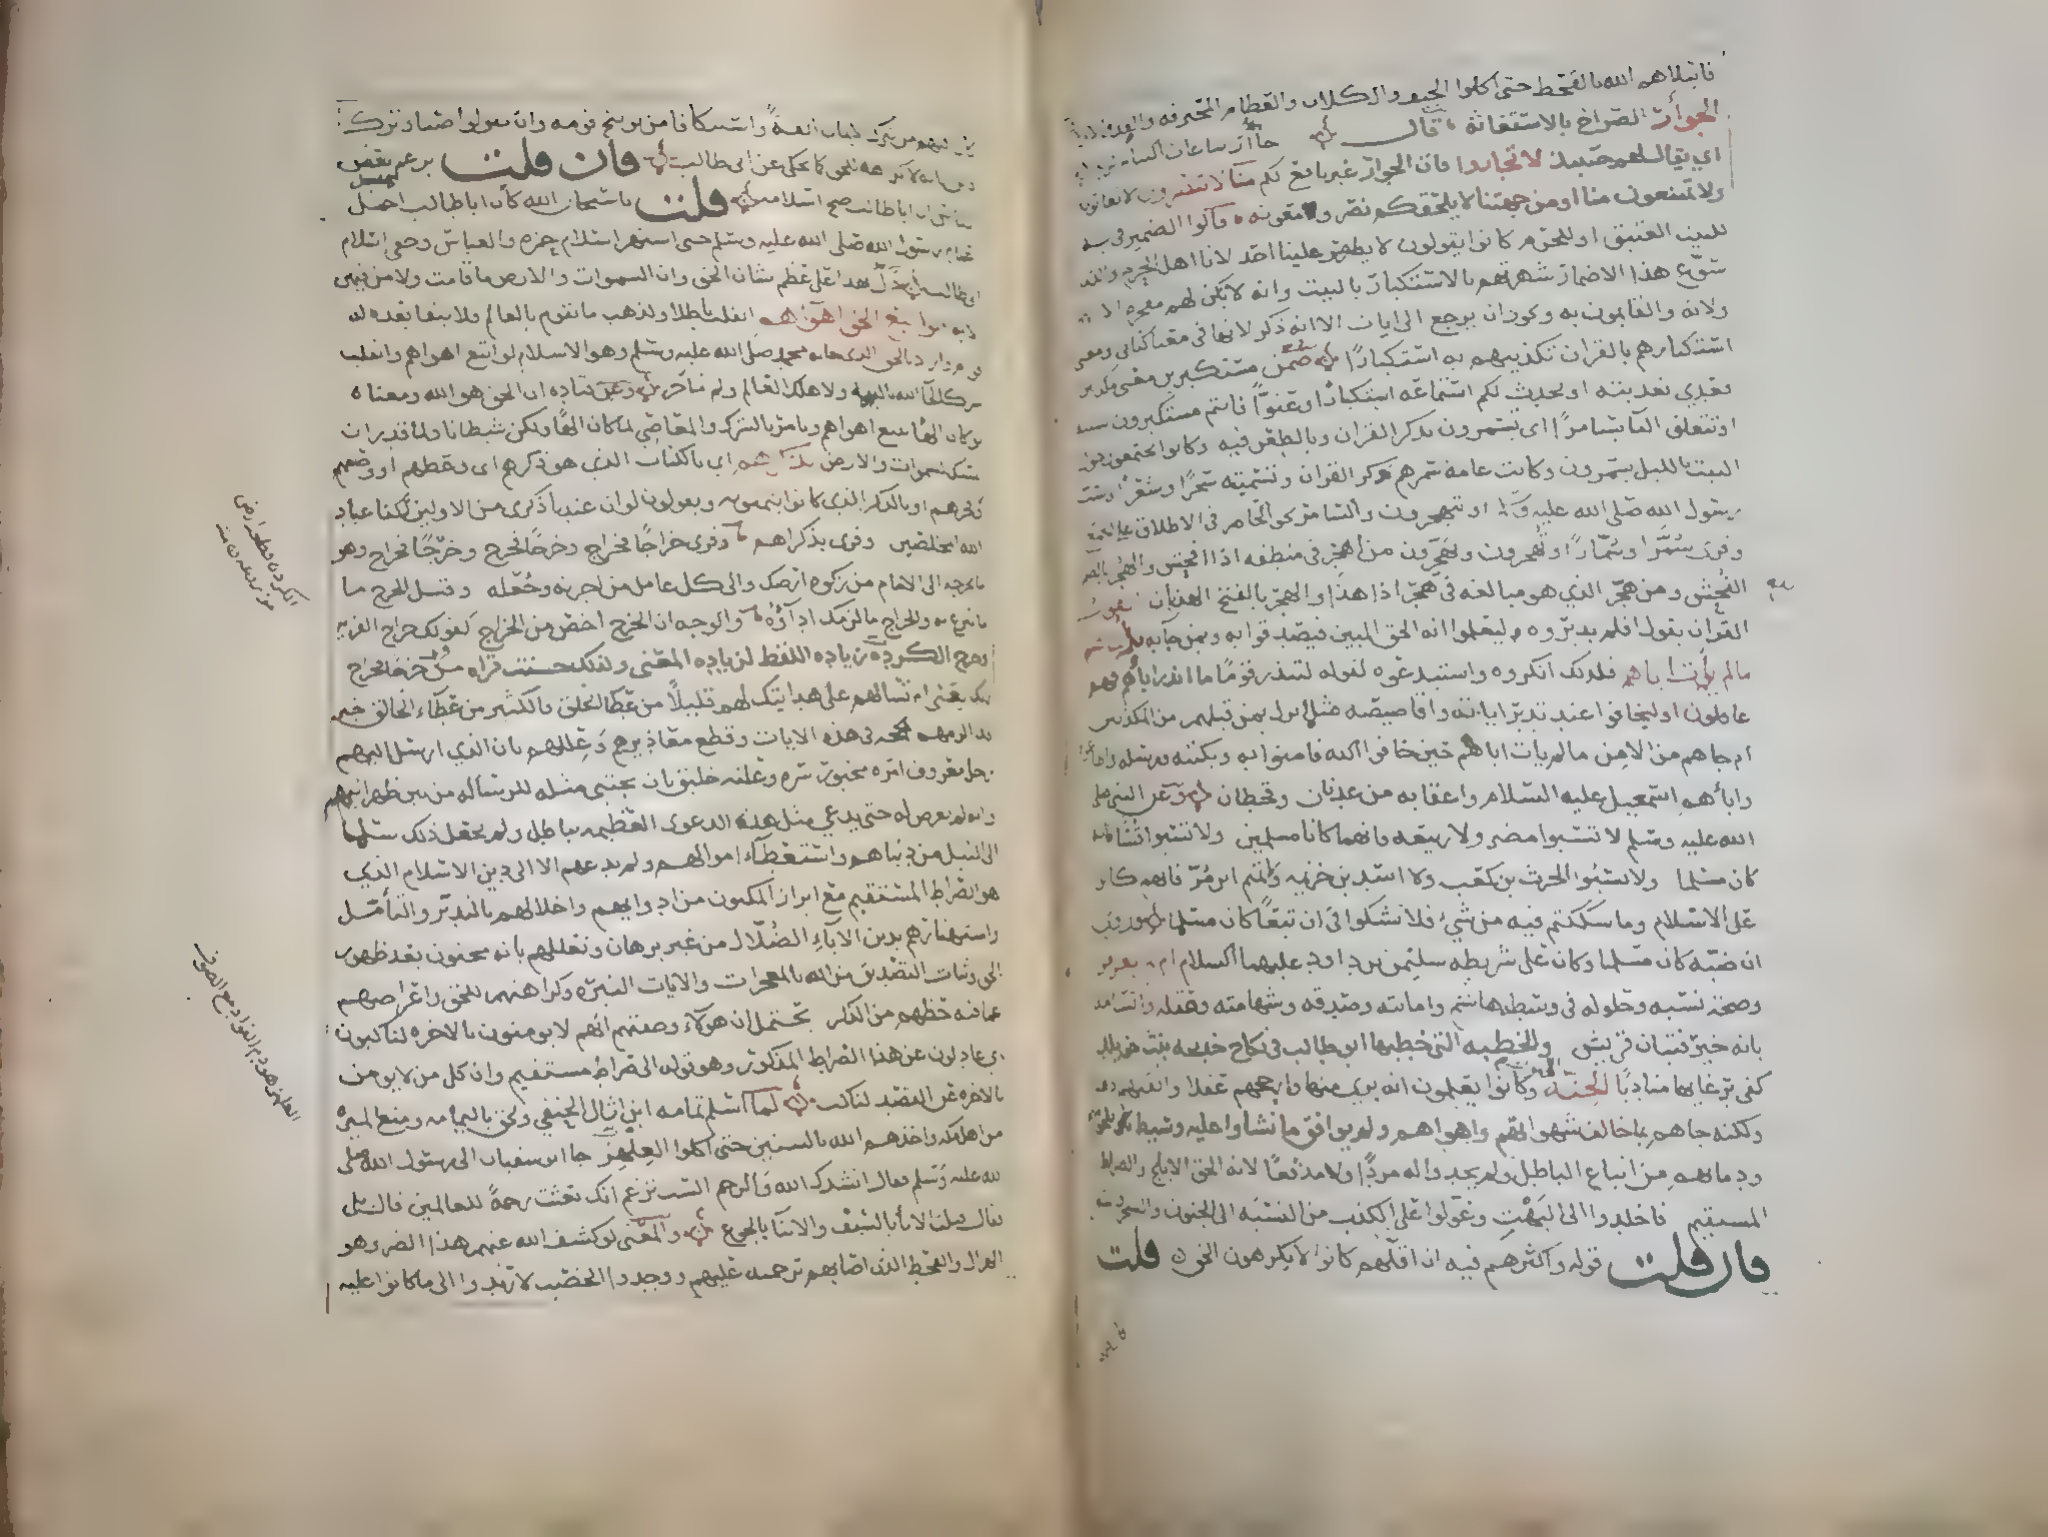 فابتلاهم الله بالقحط حتى أكلوا الجيف والكلاب والعظام المحترقة والقد
الجوار الصراخ بالاستغاثة قال جاار ساعات النيام لربه
اي يقال لهم حينيذ لا تجاروا فان الجوار غير نافع لكم منا لا تنصرون لا تغاثون
ولا تمنعون منا او من جهتنا لا يلحقكم نصر ومغوثه قالوا الضمير في به
للبيت العتيق او للحرم كانوا يقولون لا يظهر علينا احد لانا اهل الحرم والذي
سوغ هذا الاضمار شهرتهم بالاستكبار بالبيت وانه لم تكن لهم مفخرة الا
ولاته والقايمون به ويجوز ان يرجع الى اياتي الا انه ذكر لانها في معنى كتابي ومعنى
استكبارهم بالقران تكذيبهم به استكبارا ضمن مستكبرين معنى مكذبين
فعدي تعديته او يحدث لكم استماعه استكبارا وعتوا فانتم مستكبرون بسببه
او تتعلق البا بسامرا اي تسمرون بذكر القران وبالطعن فيه وكانوا يجتمعون حول
البيت بالليل يسمرون وكانت عامة سمرهم ذكر القران وتسميته سحرا وشعرا وسب
رسول الله صلى الله عليه او بتهجرون والسامر نحو الحاضر في الاطلاق على الجمع
وقرى سمرا وسمارا وتهجرون وتهجرون من اهجر في منطقه اذا افحش والهجر بالضم
الفحش ومن هجر الذي هو مبالغة في هجر اذا هذا والهجر بالفتح الهذيان القول
القران يقول افلم يدبروه ليعلموا انه الحق المبين فيصدقوا به وبمن جا به
ما لم يات اباهم فلذلك انكروه واستبدعوه لقوله لتنذر قوما ما انذر اباؤهم فهم
غافلون او ليخافوا عند تدبر اياته واقاصيصه مثل ما نزل بمن قبلهم من المكذبين
ام جاهم من الامن ما لم يات اباهم حين خافوا الله فامنوا به وبكتبه ورسله واطاعوه
واباؤهم اسمعيل عليه السلام واعقابه من عدنان وقحطان وعن النبي صلى
الله عليه وسلم لا تسبوا مضر ولا ربيعة فانهما كانا مسلمين ولا تسبوا قسا فانه
كان مسلما ولا تسبوا الحرث بن كعب ولا اسد بن خزيمه ولا تميم ابن مر فانهم كانوا
على الاسلام وما شككتم فيه من شيء فلا تشكوا في ان تبعا كان مسلما وروي في
ان ضبة كان مسلما وكان على شرطه سليمن بن داود عليهما السلام ام لم يعرفوا
وصحة نسبه وحلوله في وسطه هاشم وامانته وصدقه وشهامته وعقله واتسامه
بانه خير فتيان قريش والخطبه التي خطبها ابو طالب في نكاح خديجه بنت خويلد
كفى برغايها مناديا الجنه وكانوا يعلمون انه بري منها وارجحهم عقلا واثقبهم ذهنا
ولكنه جاهم بما خالف شهواتهم واهواهم ولم يوافق ما نشاوا عليه وسيط بلحومهم
ودمايهم من اتباع الباطل ولم يجدوا له مردا ولا مدفعا لانه الحق الابلج والصراط
المستقيم فاخلدوا الى البهت وعولوا على الكذب من النسبه الى الجنون والسحر
فان قلت قوله واكثرهم فيه ان اقلهم كانوا لا يكرهون الحق قلت
كان فيهم من يترك الايمان انفة واستنكافا من توبيخ قومه وان يقولوا صبا وترك
دين ابايه لا كراهة للحق كما يحكى عن ابي طالب فان قلت يزعم بعض
الناس ان ابا طالب صح اسلامه قلت يا سبحان الله كان ابا طالب اخمل
اعمام رسول الله صلى الله عليه وسلم حتى اشتهر اسلام حمزه والعباس وخفي اسلام
ابي طالب دل بهذا على عظم شان الحق وان السموات والارض ما قامت ولا من فيهن
الا به فلو اتبع الحق اهواهم لانقلب باطلا ولذهب ما تقوم به العالم ولا يبقى بعده له
قوام او اراد ان الحق الذي جا به محمد صلى الله عليه وسلم وهو الاسلام لو اتبع اهواهم وانقلب
شركا لجا الله بالقيمه ولاهلك العالم ولم يؤخر وعن قتاده ان الحق هو الله ومعناه
لو كان الها يتبع اهواهم ويامر بالشرك والمعاصي لما كان الها ولكن شيطانا ولما قدر ان
يمسك السموات والارض بذكرهم اي بالكتاب الذي هو ذكرهم اي وعظهم او وصيتهم
وفخرهم او بالذكر الذي كانوا يتمنونه ويقولون لو ان عندنا ذكرى من الاولين لكنا عباد
الله المخلصين وقرى بذكراهم وقرى خراجا فخراج وخرجا فخرج وخرجا فخراج وهو
ما تخرجه الى الامام من زكوة ارضك والى كل عامل من اجرته وجعله وقيل الخرج ما
تبرعت به والخراج ما لزمك اداؤه والوجه ان الخرج اخص من الخراج كقولك خراج القريه
وخرج الكرده زياده اللفظ لزياده المعنى ولذلك حسنت قراه من قرا خرجا فخراج
ربك يعني ام تسالهم على هدايتك لهم قليلا من عطا الخلق فالكثير من عطاء الخالق خير
قد الزمهم الحجه في هذه الايات وقطع معاذيرهم وعللهم بان الذي ارسل اليهم
رجل معروف امره مخبور سره وعلنه خليق بان يجتبى مثله للرساله من بين ظهرانيهم
وانه لم يعرض له حتى يدعي مثل هذه الدعوى العظيمه بباطل ولم يجعل ذلك سلما
الى النيل من دنياهم واستعطاء اموالهم ولم يدعهم الا الى دين الاسلام الذي
هو الصراط المستقيم مع ابراز المكنون من ادوايهم واخلالهم بالتدبر والتامل
واستهتارهم بدين الاباء الضلال من غير برهان وتعللهم بانه مجنون بعد ظهور
الحق وثبات التصديق من الله بالمعجزات والايات النيره وكراهتهم للحق واعراضهم
عما فيه حظهم من الذكر يحتمل ان هولاء وصفتهم انهم لا يومنون بالاخره لناكبون
اي عادلون عن هذا الصراط المذكور وهو قوله الى صراط مستقيم وان كل من لا يومن
بالاخره عن القصد لناكب لما اسلم ثمامه ابن اثال الحنيفي ولحق باليمامه ومنع الميره
من اهل مكه واخذهم الله بالسنين حتى اكلوا العلهز جا ابو سفيان الى رسول الله صلى
الله عليه وسلم فقال انشدك الله والرحم الست تزعم انك بعثت رحمة للعالمين قال بلى
فقال قتلت الابا بالسيف والابنا بالجوع والمعنى لو كشف الله عنهم هذا الضر وهو
الهزال والقحط الذي اصابهم برحمته عليهم ووجدوا الخصب لارتدوا الى ما كانوا عليه
العلهز هو دم القراد مع الصوف